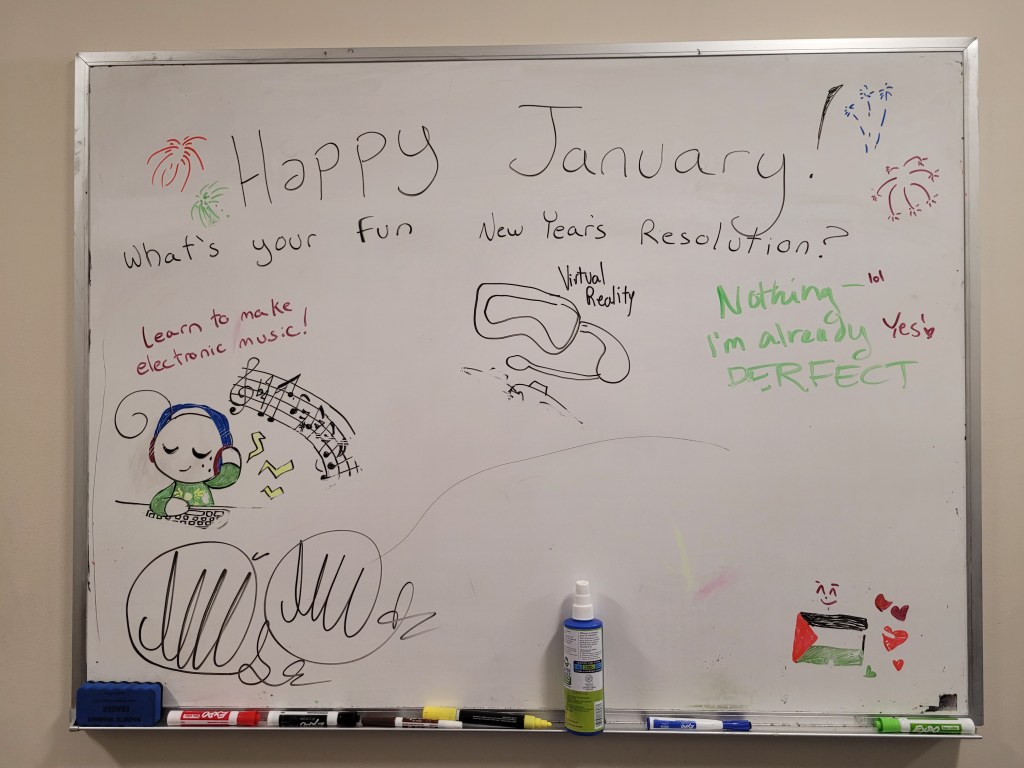 Happy January!
What's your fun New Year's Resolution?
Learn to make
electronic music!
Virtual
Reality
Nothing - lol
I'm already Yes!
PERFECT
EXPO
EXPO
EXPO